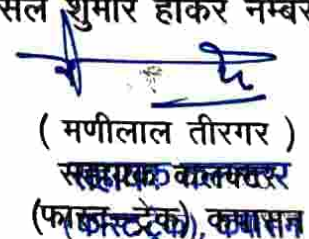 सल शुमार होकर नम्बर
( मणीलाल तीरगर )
सहायक कलक्टर
(फास्ट ट्रेक)